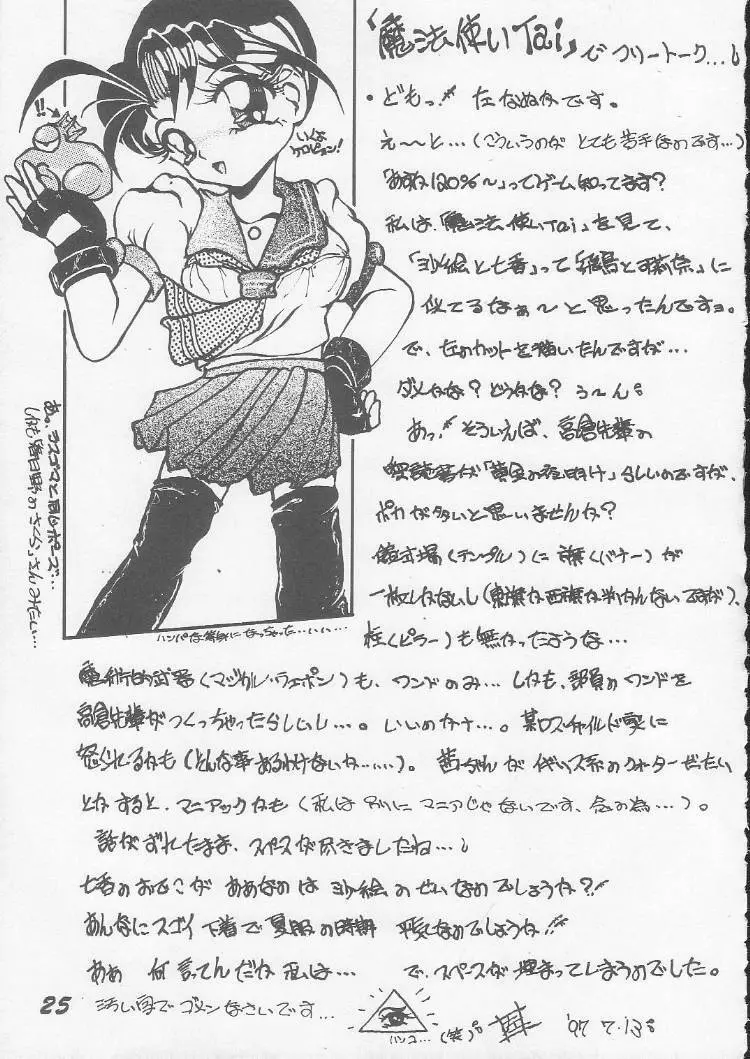 「魔法使いTai」でフリートーク…し
・どもっ!! たなぬかです。
え〜と…(こういうのが とても苦手なのです…)
「あすか120%〜」ってゲーム知ってます?
私は「魔法使いTai」を見て、
「沙絵と七香」って「飛鳥と環奈」に
似てるなぁ〜と思ったんですョ。
で、左のカットを描いたんですが…
ダメかな? どうかな? う〜ん。
あっ!! そういえば、高倉先輩の
解説書が「黄金の夜明け」らしいのですが、
ポカが多いと思いませんか?
儀式場(テンプル)に旗(バナー)が
一枚しかないし(東旗か西旗か判かんないですが)、
柱(ピラー)も無かったような…
魔術的武器(マジカル・ウェポン)も、ワンドのみ…しかも、部員のワンドを
高倉先輩がつくっちゃったらしいし…。いいのかナ…。某ロスチャイルド家に
怒られてるかも(どんな事あるわけないか……)。茜ちゃんがイギリス系のクォーターだたい
とかすると、マニアックかも(私は別にマニアじゃないです、念の為…)。
話がずれたまま、スペースが尽きましたね…し
七香のおでこがああなのは沙絵のせいなのでしょうか?!!
あんなにスゴイ下着で夏服の時期 平気なのでしょうか!!
あぁ 何言ってんだか私は… で、スペースが埋まってしまうのでした。
汚い字でゴメンなさいです…
ハンコ…(笑)。
'97 7.13.
25
!!
いくよ
ケロピョン!
あ。ラスゴマと同じポーズ…
しかも春日野のさくらさんみたい…
ハンパな等身になっちゃった…いいい…